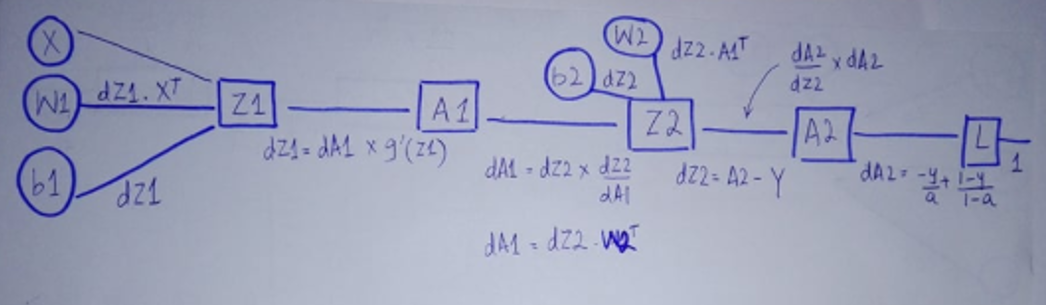 X
W1
dZ1 · Xᵀ
b1
dZ1
Z1
dZ1 = dA1 × g'(Z1)
A1
dA1 = dZ2 × dZ2/dA1
dA1 = dZ2 · W2ᵀ
b2
dZ2
W2
dZ2 · A1ᵀ
Z2
dA2/dZ2 × dA2
dZ2 = A2 - Y
A2
dA2 = -y/a + 1-y/1-a
L
1